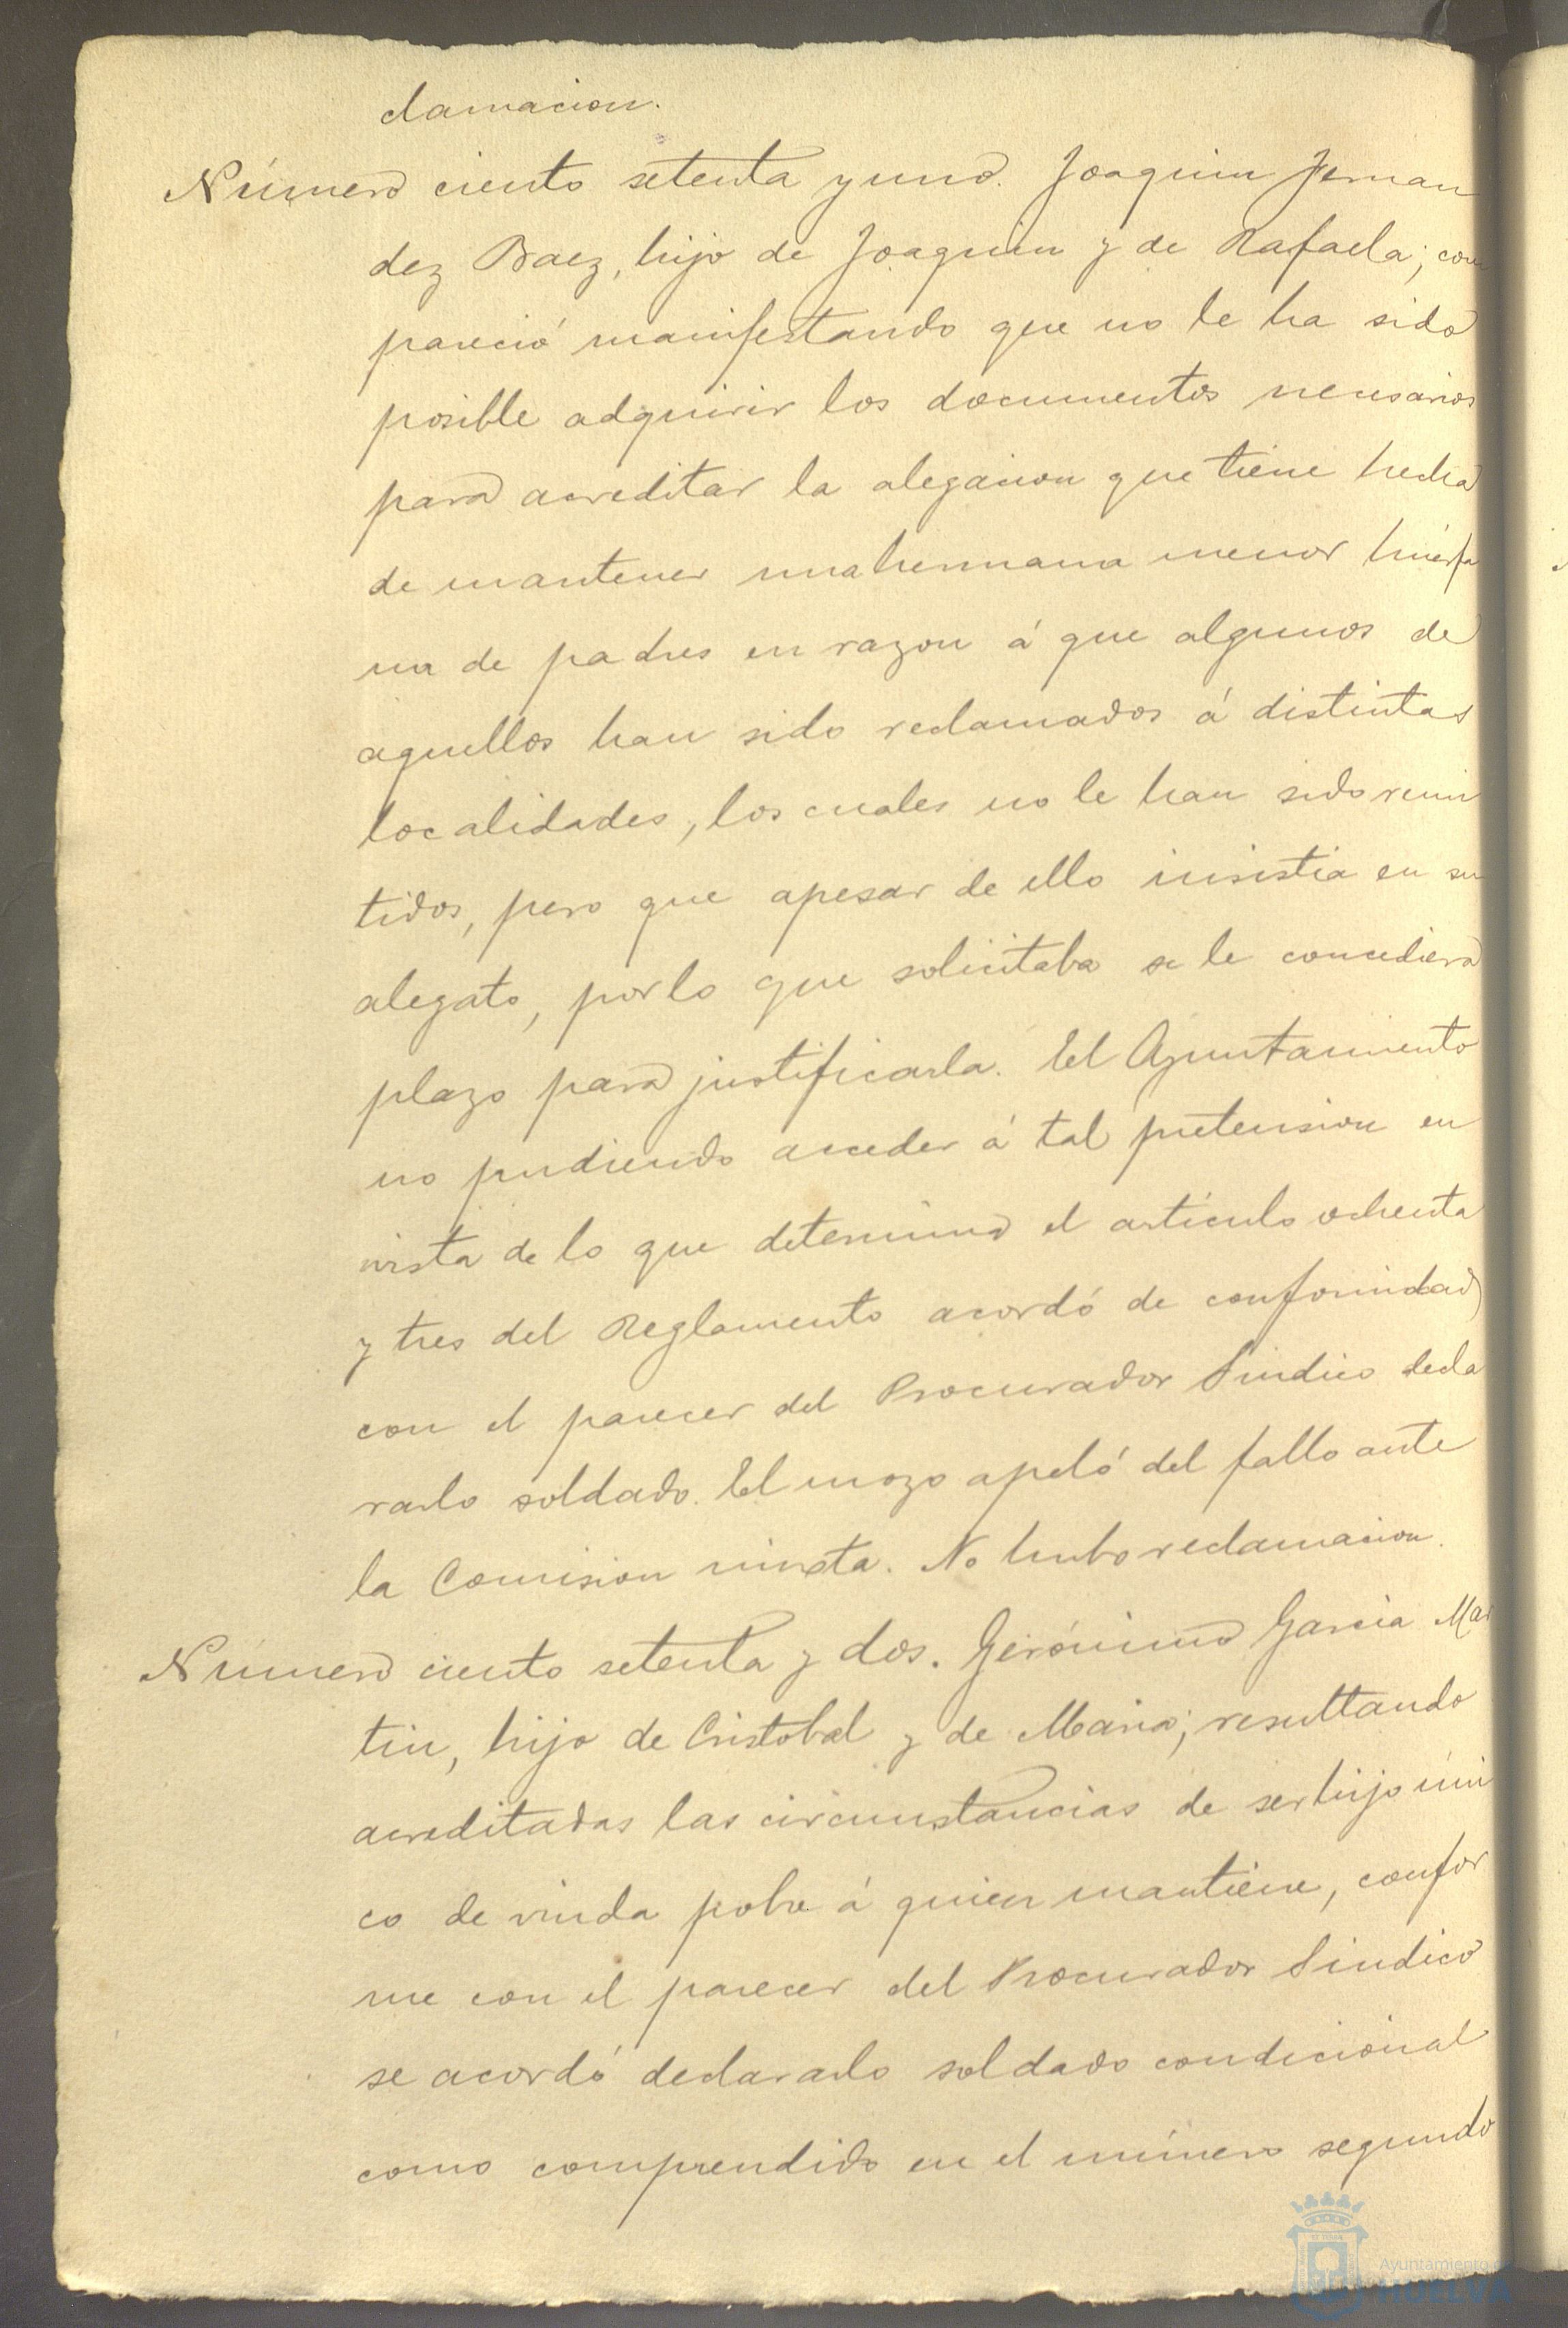 clamacion.
Número ciento setenta y uno. Joaquin Fernan
dez Baez, hijo de Joaquin y de Rafaela; com
pareció manifestando que no le ha sido
posible adquirir los documentos necesarios
para acreditar la alegacion que tiene hecha
de mantener una hermana menor huérfa
na de padres en razon á que algunos de
aquellos han sido reclamados á distintas
localidades, los cuales no le han sido remi
tidos, pero que apesar de ello insistia en su
alegato, por lo que solicitaba se le concediera
plazo para justificarla. El Ayuntamiento
no pudiendo acceder á tal pretension en
vista de lo que determina el artículo ochenta
y tres del Reglamento acordó de conformidad
con el parecer del Procurador Sindico decla
rarlo soldado. El mozo apeló del fallo ante
la Comision mixta. No hubo reclamacion.
Número ciento setenta y dos. Gerónimo Garcia Mar
tin, hijo de Cristobal y de Maria; resultando
acreditadas las circunstancias de ser hijo úni
co de viuda pobre á quien mantiene, confor
me con el parecer del Procurador Sindico
se acordó declararlo soldado condicional
como comprendido en el número segundo
Ayuntamiento de
HUELVA